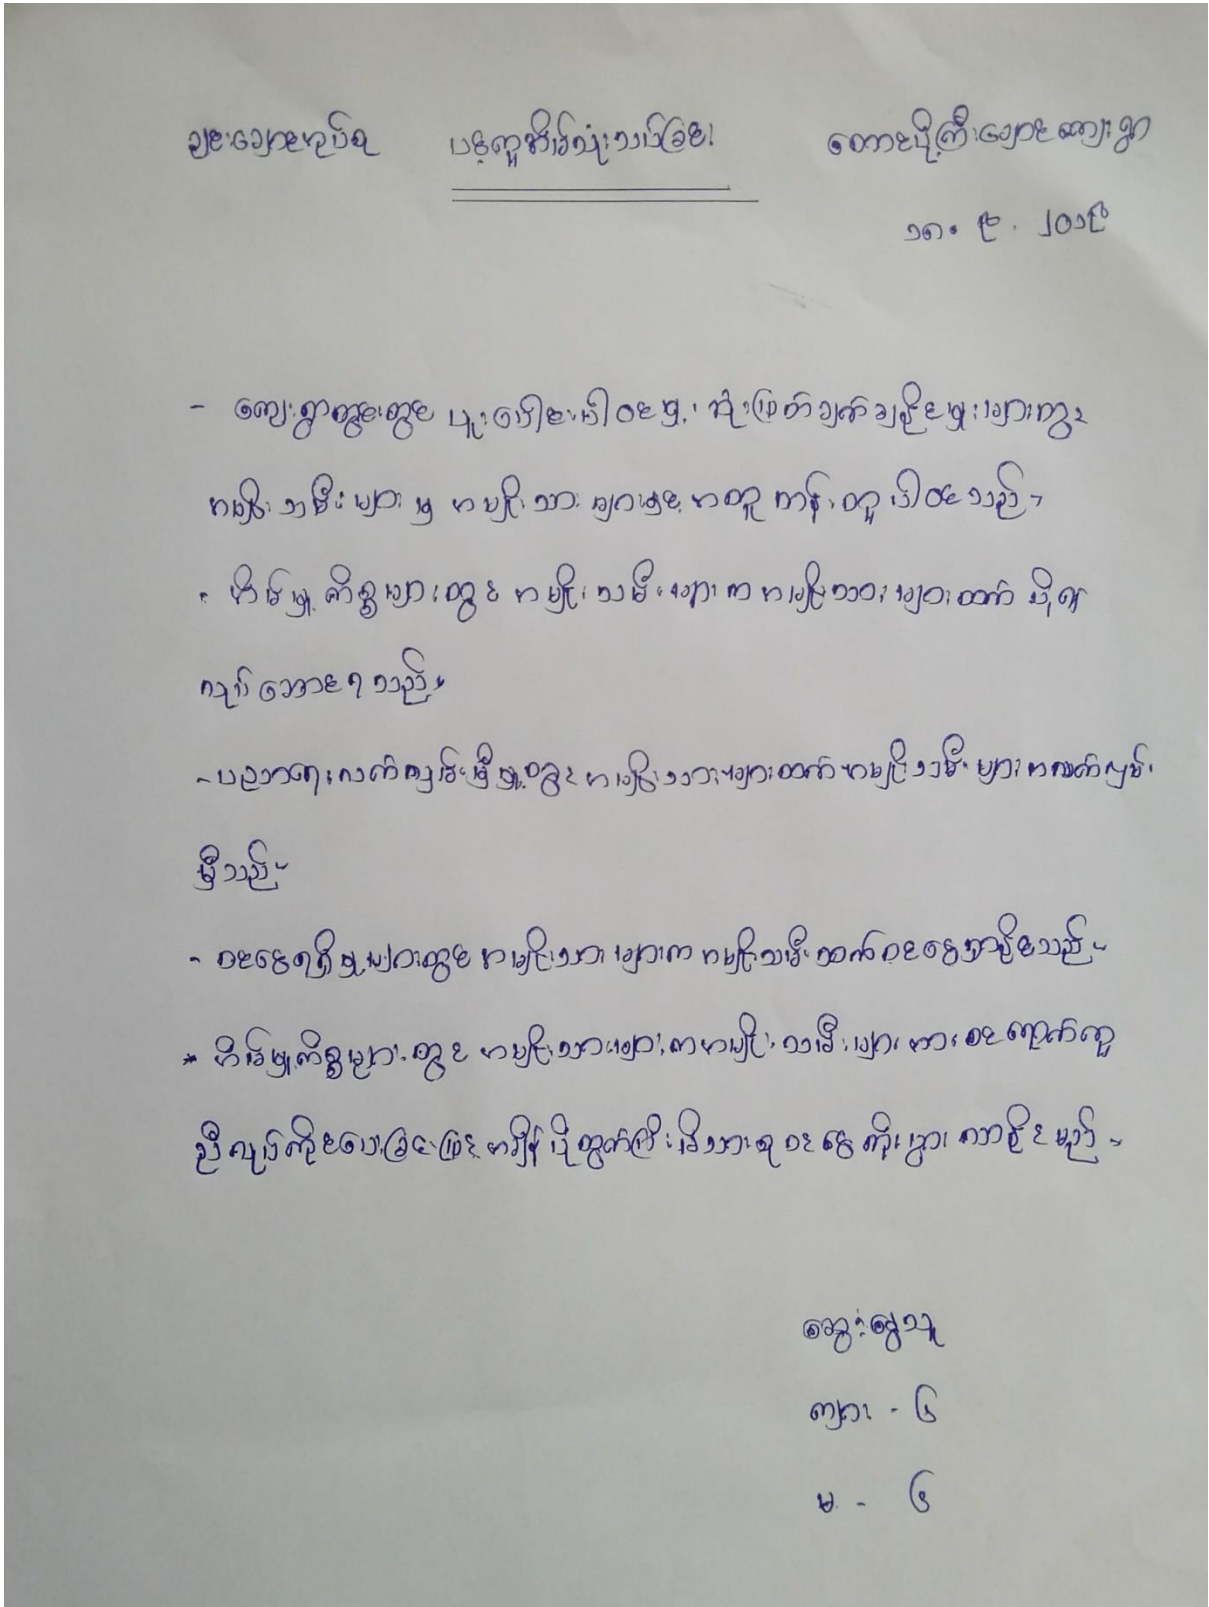 ချင်းချောင်းအုပ်စု ပန်းကူအိမ်သုံးသပ်ခြင်း တောင်ပို့ကြီးချောင်ကျေးရွာ
၁၈.၉.၂၀၁၉
- ကျေးရွာတွင်းတွင် ပူးပေါင်းပါဝင်မှု၊ ဆုံးဖြတ်ချက်ချနိုင်မှုများတွင်
အမျိုးသမီးများ မှ အမျိုးသားများနှင့် အတူ တန်းတူ ပါဝင်သည်။
- အိမ်မှုကိစ္စများတွင် အမျိုးသမီးများက အမျိုးသားများထက် ပို၍
လုပ်ဆောင်ရသည်။
- ပညာရေးလက်လှမ်းမှီမှုတွင် အမျိုးသားများထက် အမျိုးသမီးများ အလက်လှမ်း
မှီသည်။
- ဝင်ငွေရရှိမှုများတွင် အမျိုးသားများက အမျိုးသမီးထက် ဝင်ငွေရှာနိုင်သည်။
* အိမ်မှုကိစ္စများတွင် အမျိုးသားများက အမျိုးသမီးများအား ဝင်ရောက်ကူ
ညီလုပ်ကိုင်ပေးခြင်းဖြင့် အချိန်ပိုထွက်ကြီးမိသားစု ဝင်ငွေတိုးပွားလာနိုင်မည်။
ဆွေးနွေးသူ
ကျား - ၆
မ - ၆